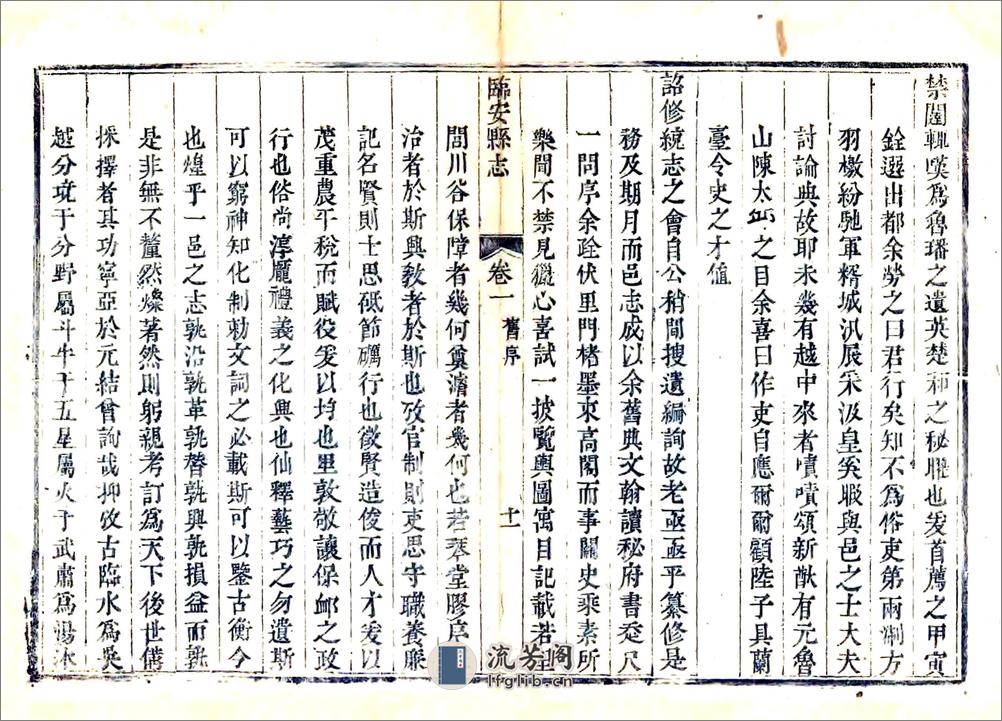 禁闥輒嘆為魯璠之遺英楚和之秘臚也爰首薦之甲寅
銓選出都余勞之曰君行矣知不為俗吏第兩淛方
羽檄紛馳軍糈城汛展采汲皇奚暇與邑之士大夫
討論典故耶未幾有越中來者嘖嘖頌新猷有元魯
山陳太丘之目余喜曰作吏自應爾爾顧陸子具蘭
臺令史之才值
詔修統志之會自公稍間搜遺編詢故老亟亟乎纂修是
務及期月而邑志成以余舊典文翰讀秘府書走尺
一問序余詮伏里門楮墨束高閣而事關史乘素所
樂聞不禁見獵心喜試一披覽輿圖寓目記載若
臨安縣志 卷一 舊序 十一
閭川谷保障者幾何奠濬者幾何也若琴堂膠序
治者於斯興教者於斯也攷官制則吏思守職養廉
記名賢則士思砥節礪行也徵賢造俊而人才爰以
茂重農平稅而賦役爰以均也里敦敬讓保卹之政
行也俗尚淳龐禮義之化興也仙釋藝巧之勿遺斯
可以窮神知化制勅文詞之必載斯可以鑒古衡今
也煌乎一邑之志孰沿孰革孰替孰興孰損益而孰
是非無不釐然燦著然則躬親考訂為天下後世備
採擇者其功寧亞於元結曾詢哉抑攷古臨水為吳
越分境于分野屬斗牛于五星屬火于武肅為湯沐
流芳阁
lfglib.cn